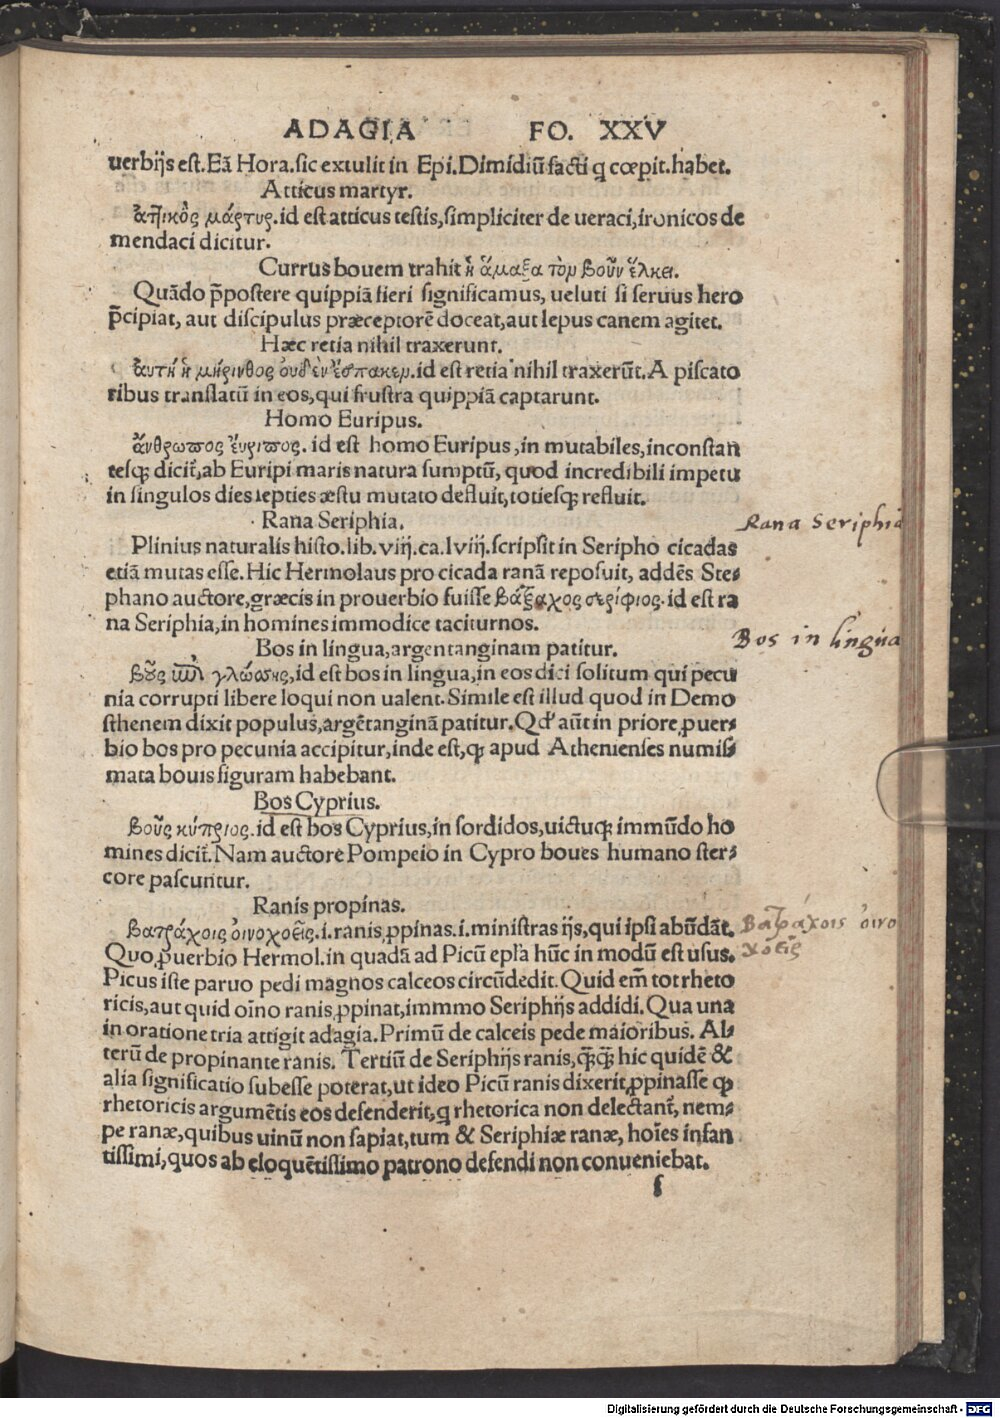 ADAGIA FO. XXV
uerbijs est. Eā Hora. sic extulit in Epi. Dimidiū facti q̄ cœpit. habet.
Atticus martyr.
ἀττικὸς μάρτυς. id est atticus testis, simpliciter de ueraci, ironicos de
mendaci dicitur.
Currus bouem trahit ἡ ἅμαξα τὸν βοῦν ἕλκει.
Quādo p̄postere quippiā fieri significamus, ueluti si seruus hero
p̄cipiat, aut discipulus præceptorē doceat, aut lepus canem agitet.
Hæc retia nihil traxerunt.
ἁυτὴ ἡ μήρινθος ὀυδὲν ἔσπακεν. id est retia nihil traxerūt. A piscato
ribus translatū in eos, qui frustra quippiā captarunt.
Homo Euripus.
ἄνθρωπος ἔυριπος. id est homo Euripus, in mutabiles, inconstan
tesq; dicit̄, ab Euripi maris natura sumptū, quod incredibili impetu
in singulos dies septies æstu mutato defluit, totiesq; refluit.
Rana Seriphia.
Plinius naturalis histo. lib. viij. ca. lviij. scripsit in Seripho cicadas
etiā mutas esse. Hic Hermolaus pro cicada ranā reposuit, addēs Ste⸗
phano auctore, græcis in prouerbio fuisse βάτραχος σερίφιος. id est ra
na Seriphia, in homines immodice taciturnos.
Bos in lingua, argentanginam patitur.
βοῦς ἐπὶ γλώσσης, id est bos in lingua, in eos dici solitum qui pecu
nia corrupti libere loqui non ualent. Simile est illud quod in Demo
sthenem dixit populus, argētanginā patitur. Qd' aūt in priore ꝓuer⸗
bio bos pro pecunia accipitur, inde est, ꝙ apud Athenienses numis⸗
mata bouis figuram habebant.
Bos Cyprius.
βοῦς κύπριος. id est bos Cyprius, in sordidos, uictuq; immūdo ho
mines dicit̄. Nam auctore Pompeio in Cypro boues humano ster⸗
core pascuntur.
Ranis propinas.
βατράχοις ὀινοχοεῖς. i. ranis ꝓpinas. i. ministras ijs, qui ipsi abūdāt.
Quo ꝓuerbio Hermol. in quadā ad Picū epl'a hūc in modū est usus.
Picus iste paruo pedi magnos calceos circūdedit. Quid em̄ tot rheto
ricis, aut quid oīno ranis ꝓpinat, immmo Seriphijs addidi. Qua una
in oratione tria attigit adagia. Primū de calceis pede maioribus. Al⸗
terū de propinante ranis. Tertiū de Seriphijs ranis, q̄q̄ hic quidē &
alia significatio subesse poterat, ut ideo Picū ranis dixerit ꝓpinasse ꝙ
rhetoricis argumētis eos defenderit, q̄ rhetorica non delectant̄, nem⸗
pe ranæ, quibus uinū non sapiat, tum & Seriphiæ ranæ, hoīes infan
tissimi, quos ab eloquētissimo patrono defendi non conueniebat.
f
Rana Seriphia
Bos in lingua
Βατράχοις ὀινο
χοεῖς
Digitalisierung gefördert durch die Deutsche Forschungsgemeinschaft - DFG